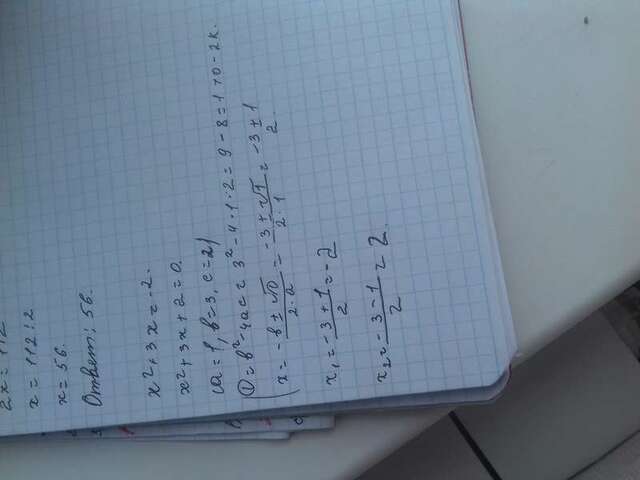 2x = 112
x = 112 : 2
x = 56.
Ответ: 56.
x² + 3x = -2.
x² + 3x + 2 = 0.
(a = 1, b = 3, c = 2)
D = b² - 4ac = 3² - 4 · 1 · 2 = 9 - 8 = 1 > 0 - 2к.
x = -b ± √D / 2 · a = -3 ± √1 / 2 · 1 = -3 ± 1 / 2.
x₁ = -3 + 1 / 2 = -2
x₂ = -3 - 1 / 2 = 2.